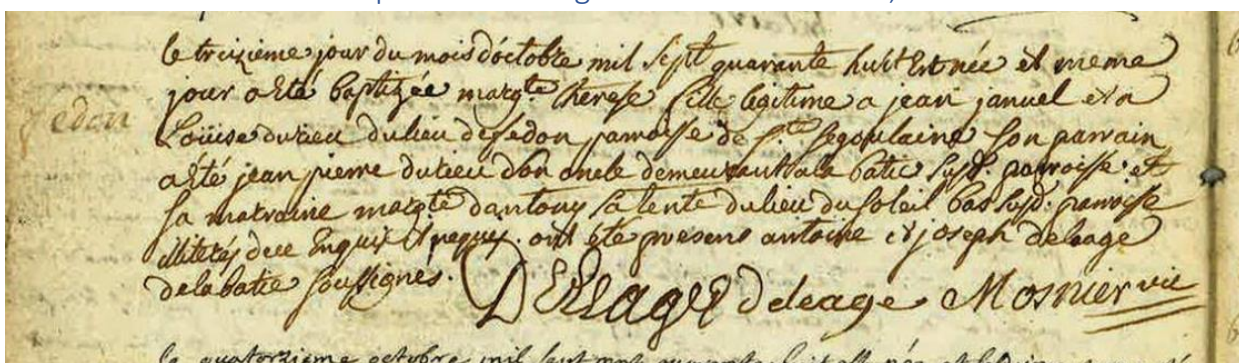 le treizieme jour du mois d'octobre mil sept quarante huit Est née et meme
jour a Eté Baptizée margte therese fille legitime a jean januel et a
fedon
Louise durieu du lieu de fedon parroisse de St. Segoulaine son parrain
a été jean pierre durieu son oncle demeurant a la batie susd. parroise et
sa marraine margte dantony sa tente du lieu du soleil bas susd. parroisse
illiterés de ce Enquis et requis. ont été presens antoine et joseph deleage
de la batie soussignés. DELEAGE deleage Mosnier vic
le quatorzieme octobre mil sept